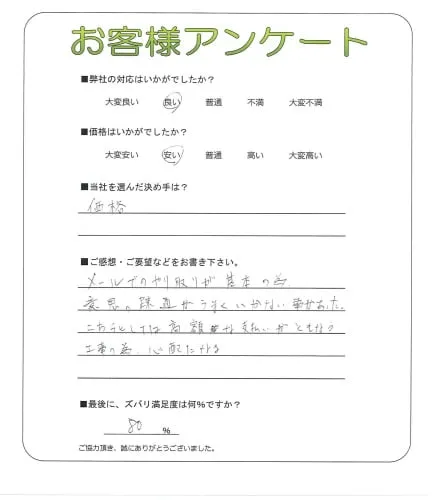 お客様アンケート
■弊社の対応はいかがでしたか?
大変良い 良い 普通 不満 大変不満
■価格はいかがでしたか?
大変安い 安い 普通 高い 大変高い
■当社を選んだ決め手は?
価格
■ご感想・ご要望などをお書き下さい。
メールでのやり取りが基本の為
意思の疎通がうまくいかない事があった。
こちらとしては高額な支払いがともなう
工事の為、心配になる
■最後に、ズバリ満足度は何%ですか?
80 %
ご協力頂き、誠にありがとうございました。